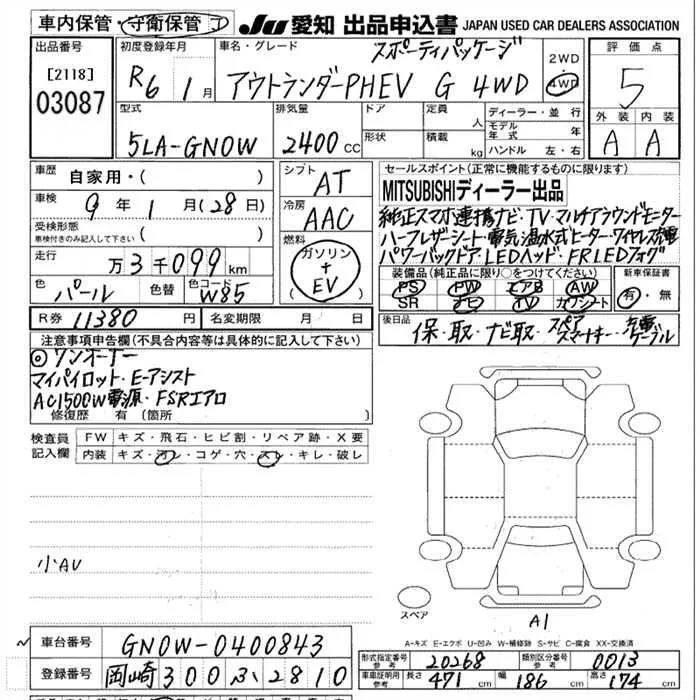 車内保管・守衛保管 J JU愛知 出品申込書 JAPAN USED CAR DEALERS ASSOCIATION
出品番号 [2118] 03087
初度登録年月 R6 1月
車名・グレード スポーティパッケージ
アウトランダーPHEV G 4WD
2WD
4WD
評価点 5
外装 内装
A A
型式 5LA-GN0W
排気量 2400cc
ドア 形状
定員 人
積載 kg
ディーラー・並行
モデル年式 年
ハンドル 左・右
車歴 自家用・( )
車検 9年1月(28日)
受検形態 車検付きのみ記入して下さい ( )
走行 万3千099km
色 パール 色替 色コード W85
シフト AT
冷房 AAC
燃料 ガソリン+EV
R券 11380円 名変期限 月 日
セールスポイント(正常に機能するものに限ります)
MITSUBISHIディーラー出品
純正スマホ連携ナビ・TV・マルチアラウンドモニター
ハーフレザーシート・電気温水式ヒーター・ワイヤレス充電
パワーバックドア・LEDヘッド・FRLEDフォグ
装備品(純正品に限り○をつけてください)
PS PW エアB AW
SR ナビ TV カワシート
新車保証書 有・無
後日品 保・取・ナビ取・スペアスマートキー・充電ケーブル
注意事項申告欄(不具合内容等は具体的に記入して下さい)
◎ワンオーナー
マイパイロット・E-アシスト
AC1500W電源・FSRエアロ
修復歴 有 [箇所 ]
検査員記入欄
FW キズ・飛石・ヒビ割・リペア跡・X要
内装 キズ・汚レ・コゲ・穴・スレ・キレ・破レ
小AU
スペア
A1
A-キズ E-エクボ U-凹み W-補修跡 S-サビ C-腐食 XX-交換済
車台番号 GN0W-0400843
登録番号 岡崎300ふ2810
形式指定番号 参考 20268 類別区分番号 参考 0013
車庫証明用 参考 長さ 471cm 幅 186cm 高さ 174cm